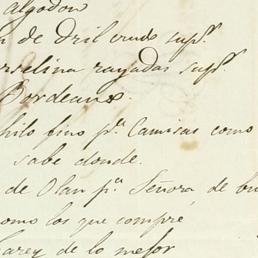 algodon
de Dril crudo sup.r
rayadas sup.r
Bordeaux.
hilo fino p.a Camisas como
sabe donde.
de Olan p.a Señora, de bu
como los que compré
Carey de lo mejor